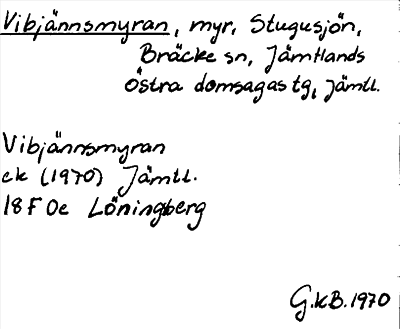 Vibjännsmyran, myr, Stugusjön,
Bräcke sn, Jämtlands
östra domsagas tg, Jämtl.
Vibjännsmyran
ek (1970) Jämtl.
18F 0e Löningsberg
G.k.B. 1970